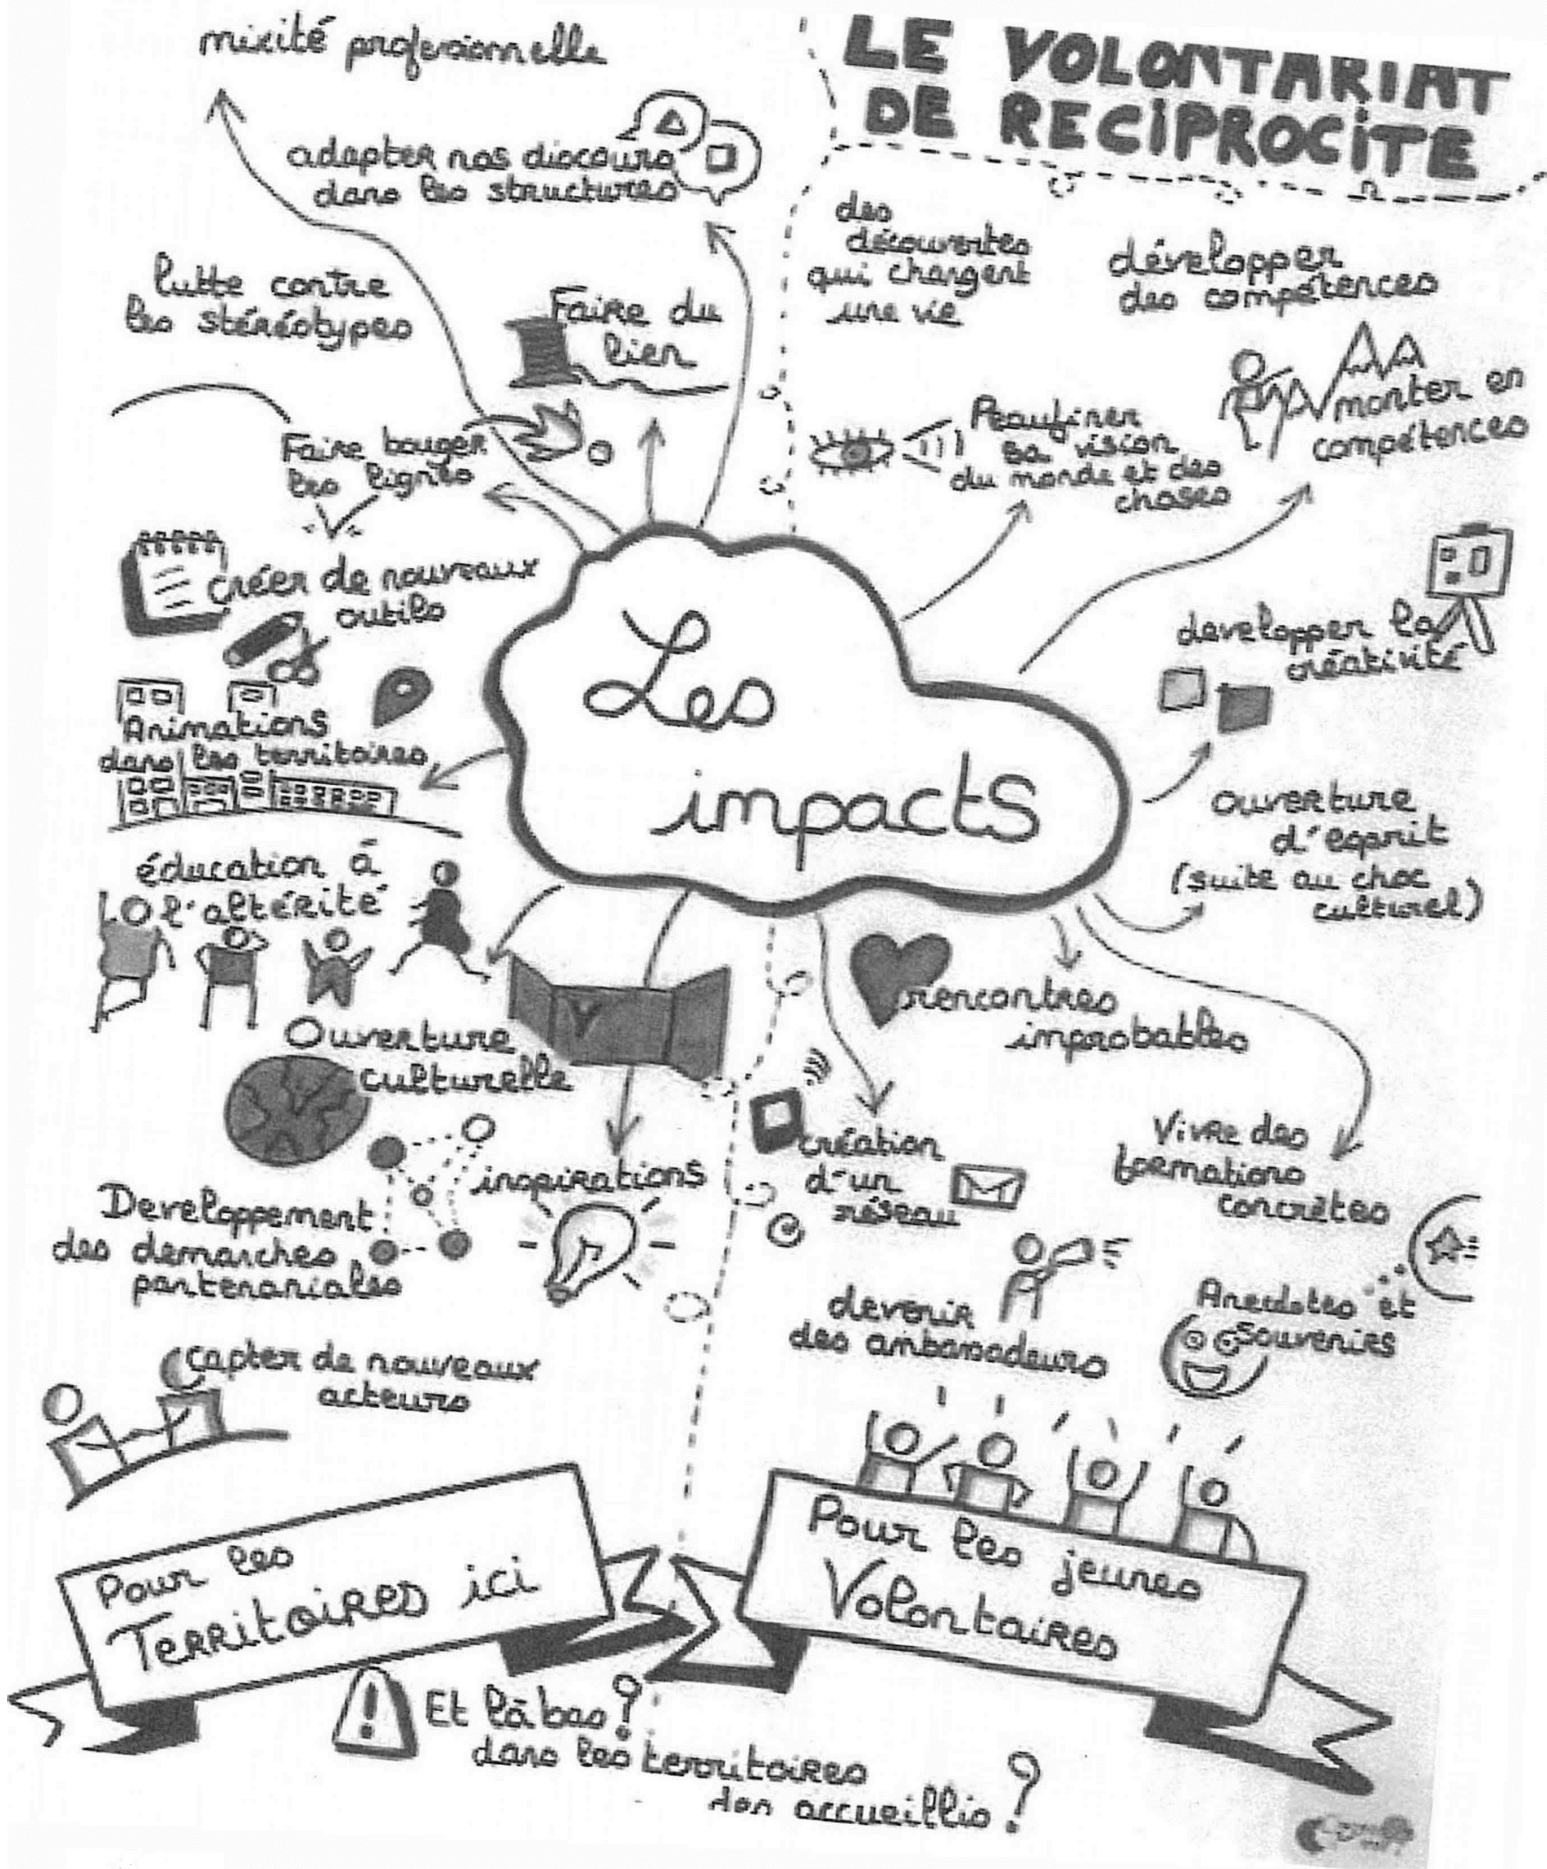 LE VOLONTARIAT
DE RECIPROCITE
mixité professionnelle
adapter nos discours
dans les structures
lutte contre
les stéréotypes
Faire du
lien
Faire bouger
les lignes
créer de nouveaux
outils
Animations
dans les territoires
éducation à
l'altérité
Ouverture
culturelle
inspirations
Developpement
des demarches
partenariales
capter de nouveaux
acteurs
Pour les
TERRitoiRES ici
Les
impacts
des
découvertes
qui changent
une vie
développer
des compétences
Peaufiner
sa vision
du monde et des
choses
monter en
compétences
developper la
créativité
ouverture
d'esprit
(suite au choc
culturel)
rencontres
improbables
création
d'un
réseau
Vivre des
formations
concrètes
devenir
des ambassadeurs
Anecdotes et
souvenirs
Pour les jeunes
Volontaires
Et là bas ?
dans les territoires
des accueillis ?